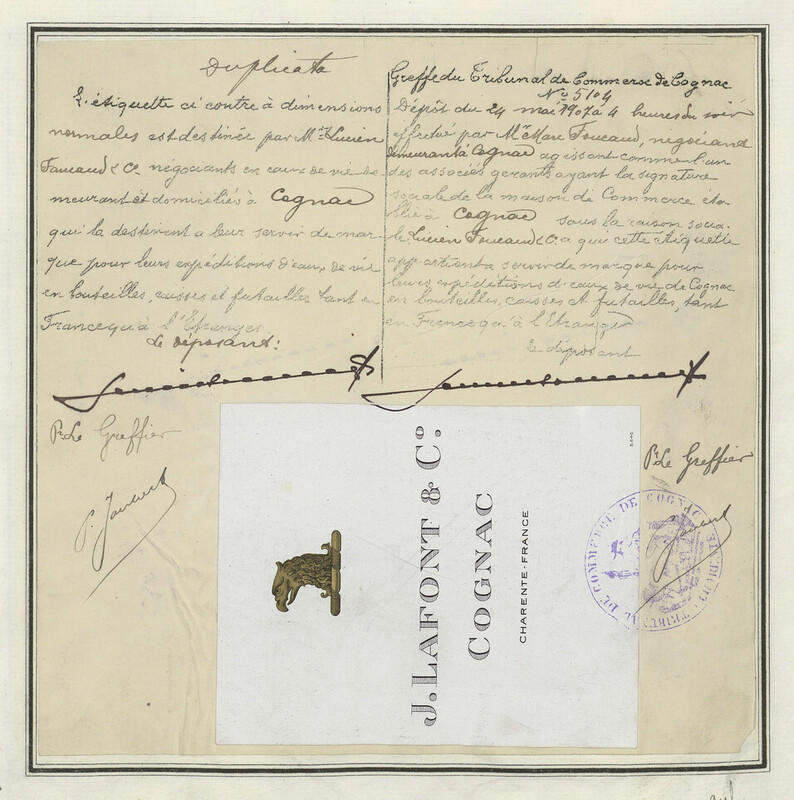 Duplicata
L'étiquette ci contre à dimensions
normales est destinée par Mrs Lucien
Foucaud & Co négociants en eaux de vie de
meurant et domiciliés à Cognac
qui la destinent a leur servir de mar
que pour leurs expéditions d'eaux de vie
en bouteilles, caisses et futailles tant en
France qu'à l'Etranger
Le déposant:
Pr Le Greffier
Greffe du Tribunal de Commerce de Cognac
No 5104
Dépôt du 24 mai 1907 a 4 heures du soir
effectué par Mr Marc Foucaud, négociand
demeurant à Cognac agissant comme l'un
des associés gerants ayant la signature
sociale de la maison de Commerce éta
blie à Cognac sous la raison socia
le Lucien Foucaud & Co. a qui cette étiquette
appartient a servir de marque pour
leurs expéditions d'eaux de vie de Cognac
en bouteilles, caisses et futailles, tant
en France qu'à l'Etranger
Le déposant
Pr Le Greffier
J. LAFONT & Co.
COGNAC
CHARENTE-FRANCE
TRIBUNAL DE COMMERCE DE COGNAC
CHARENTE